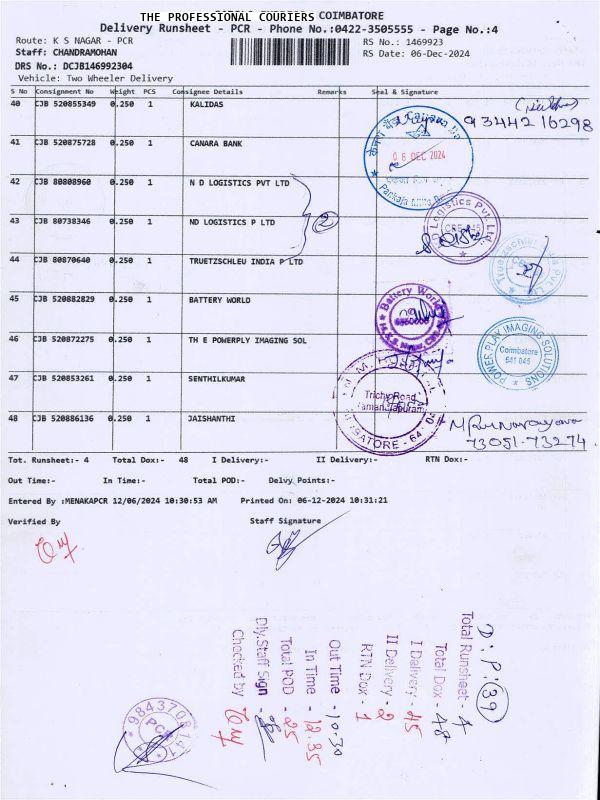 THE PROFESSIONAL COURIERS COIMBATORE
Delivery Runsheet - PCR - Phone No.:0422-3505555 - Page No.:4
Route: K S NAGAR - PCR
RS No.: 1469923
Staff: CHANDRAMOHAN
RS Date: 06-Dec-2024
DRS No.: DCJB146992304
Vehicle: Two Wheeler Delivery
S No Consignment No Weight PCS Consignee Details Remarks Seal & Signature
40 CJB 520855349 0.250 1 KALIDAS
93442 16298
41 CJB 520875728 0.250 1 CANARA BANK
06 DEC 2024
42 CJB 80808960 0.250 1 N D LOGISTICS PVT LTD
2
43 CJB 80738346 0.250 1 ND LOGISTICS P LTD
Logistics Pvt. Ltd.
44 CJB 80870640 0.250 1 TRUETZSCHLEU INDIA P LTD
45 CJB 520882829 0.250 1 BATTERY WORLD
Battery World
46 CJB 520872275 0.250 1 TH E POWERPLY IMAGING SOL
POWER PLAY IMAGING SOLUTIONS
Coimbatore
641 045
47 CJB 520853261 0.250 1 SENTHILKUMAR
Trichy Road
48 CJB 520886136 0.250 1 JAISHANTHI
73051-73274
Tot. Runsheet:- 4 Total Dox:- 48 I Delivery:- II Delivery:- RTN Dox:-
Out Time:- In Time:- Total POD:- Delvy Points:-
Entered By :MENAKAPCR 12/06/2024 10:30:53 AM Printed On: 06-12-2024 10:31:21
Verified By Staff Signature
D.P: 39
Total Runsheet - 4
Total Dox - 48
I Delivery - 45
II Delivery - 2
RTN Dox - 1
Out Time - 10.30
In Time - 12.35
Total POD - 25
Dly.Staff Sign -
Checked by
PCR